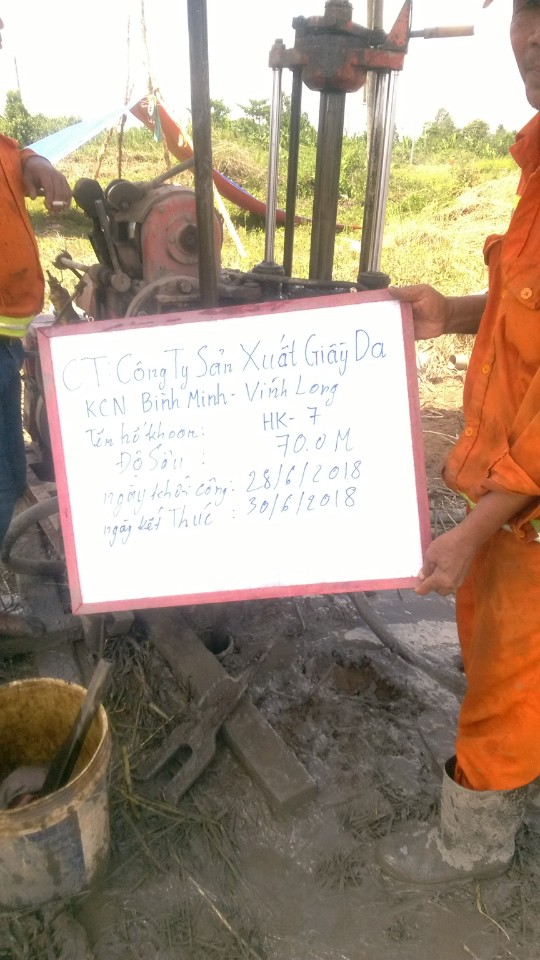 CT: Công Ty Sản Xuất Giầy Da
KCN Bình Minh - Vĩnh Long
Tên hố khoan: HK- 7
Độ Sâu : 70.0 M
ngày khởi công: 28/6/2018
ngày kết Thúc : 30/6/2018